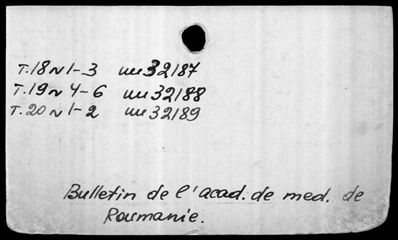 T.18 N 1-3 ин 32187
T.19 N 4-6 ин 32188
T.20 N 1-2 ин 32189
Bulletin de l'acad. de med. de
Roumanie.